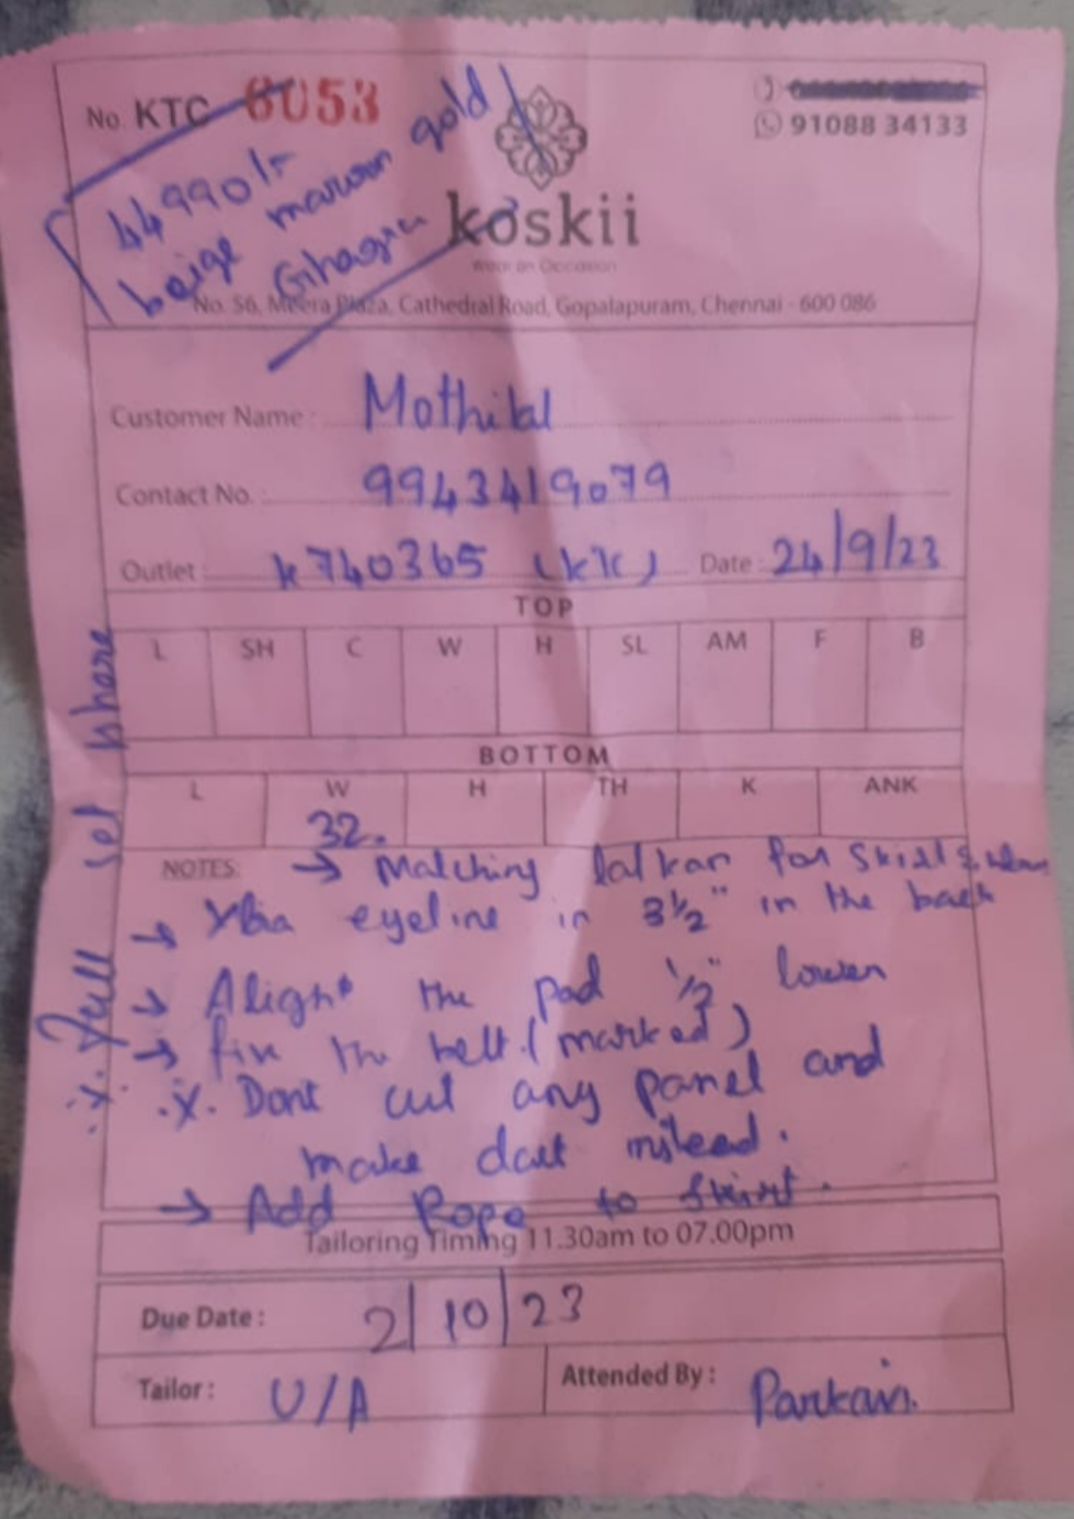 No. KTC 6053
91088 34133
44990/-
beige maroon gold
Ghagra
koskii
Wear an Occasion
No. 56, Meera Plaza, Cathedral Road, Gopalapuram, Chennai - 600 086
Customer Name : Mothilal
Contact No. : 9943419079
Outlet : k740365 (KK) Date : 24/9/23
TOP
L SH C W H SL AM F B
BOTTOM
L W H TH K ANK
32.
NOTES: → Matching latkan for Skirt &
→ eyeline in 3½" in the back
→ Align the pad ½" lower
→ fix the belt. (marked)
Dont cut any panel and
make dart instead.
→ Add Rope to Skirt.
full set share
Tailoring Timing 11.30am to 07.00pm
Due Date : 2/10/23
Tailor : U/A Attended By :